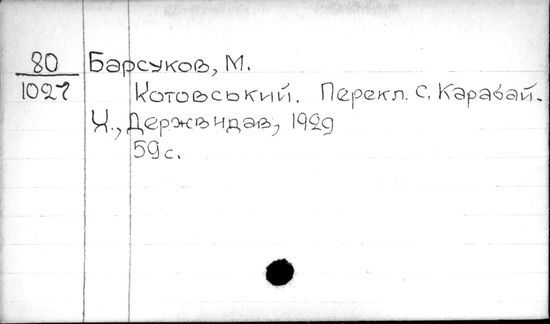 80 Барсуков, М.
1027 Котовський. Перекл. С. Каравай.
Х., Держвидав, 1929
59 с.